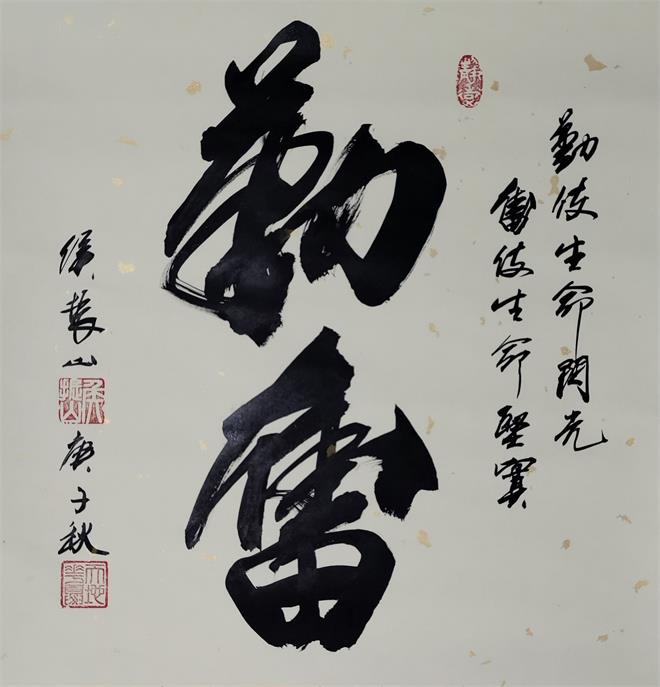 勤使生命閃光
奮使生命堅實
勤奮
山
庚子秋